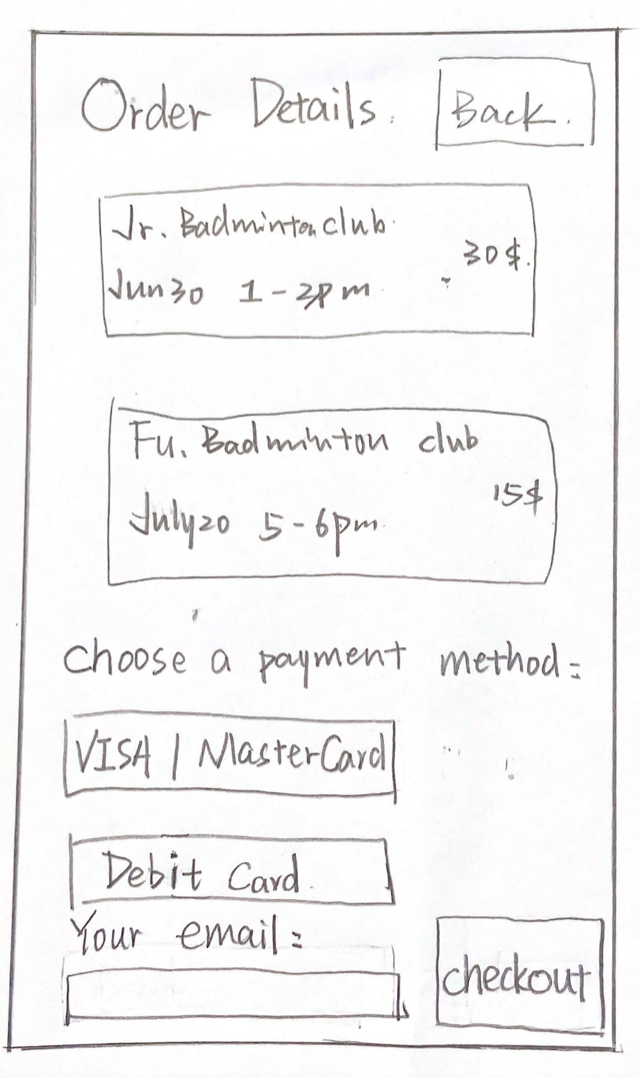 Order Details.
Back.
Jr. Badminton club.
30$.
Jun 30 1-2pm
Fu. Badminton club
15$
July 20 5-6pm
Choose a payment method:
VISA | MasterCard
Debit Card
Your email:
checkout